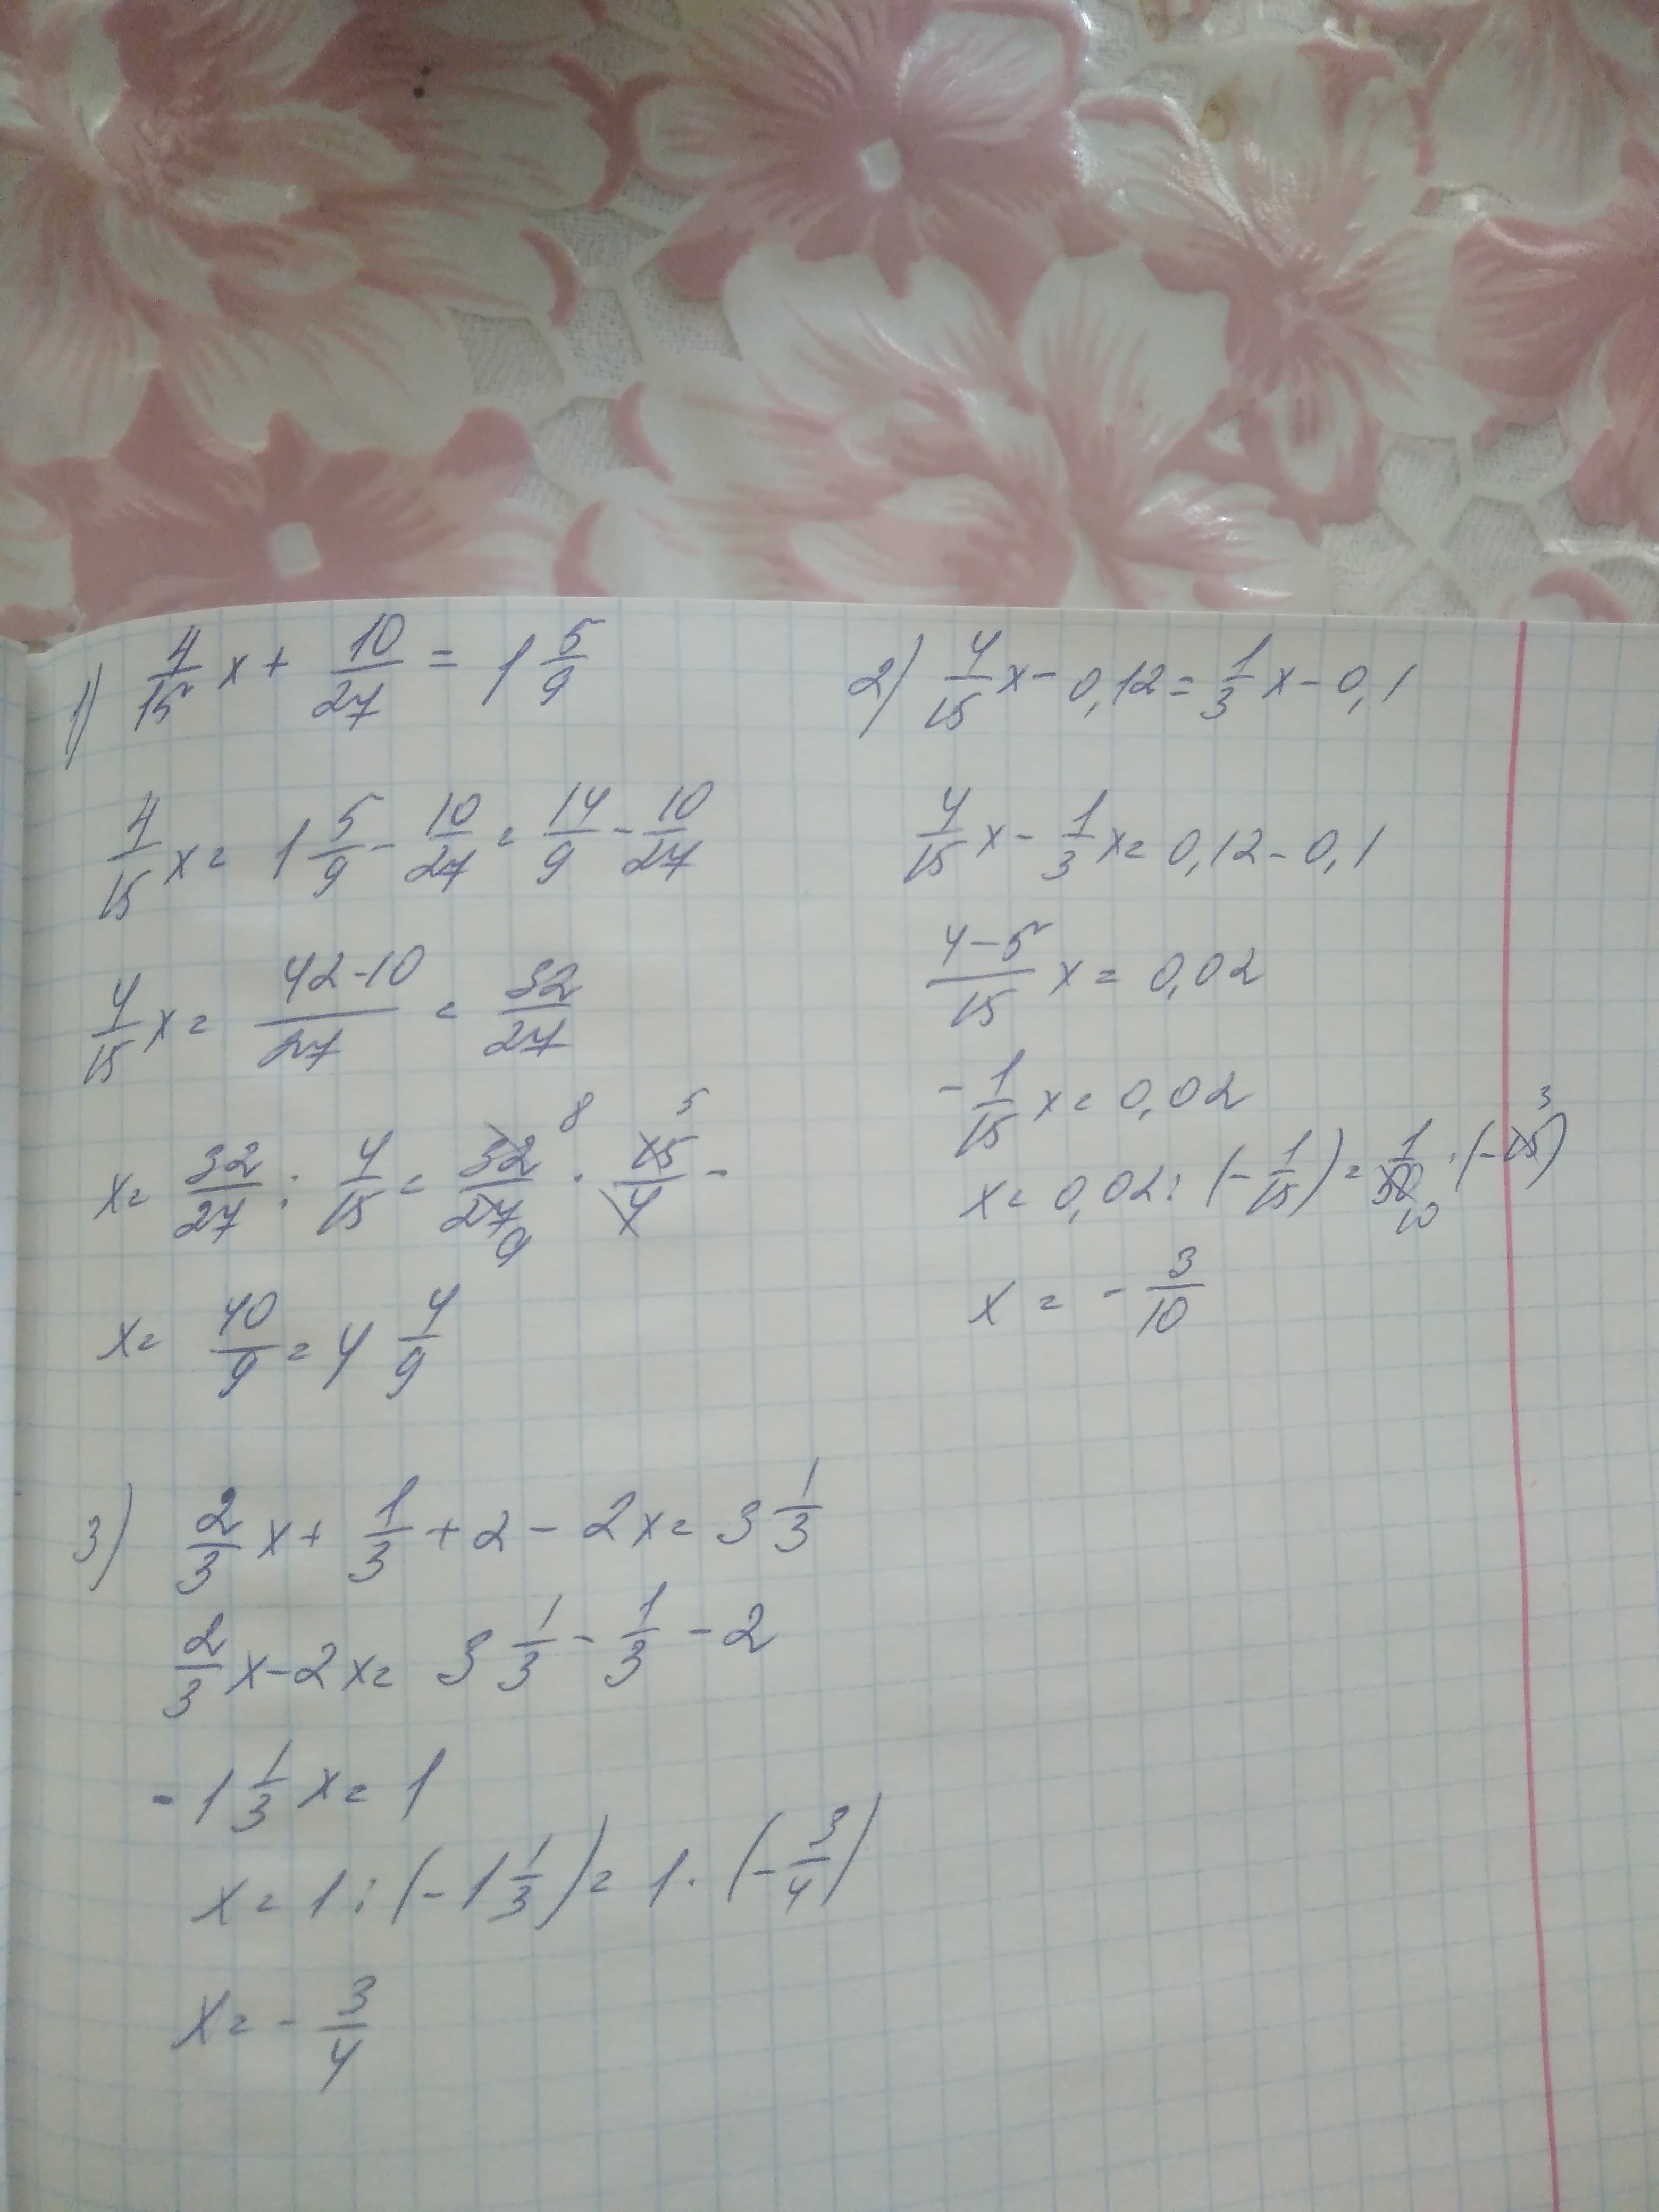 1) 4/15 x + 10/27 = 1 5/9
4/15 x = 1 5/9 - 10/27 = 14/9 - 10/27
4/15 x = (42-10)/27 = 32/27
x = 32/27 : 4/15 = 32/27 8 9 · 15/4 5 -
x = 40/9 = 4 4/9
2) 4/15 x - 0,12 = 1/3 x - 0,1
4/15 x - 1/3 x = 0,12 - 0,1
(4-5)/15 x = 0,02
- 1/15 x = 0,02
x = 0,02 : (- 1/15) = 1/50 10 · (-15) 3
x = - 3/10
3) 2/3 x + 1/3 + 2 - 2x = 3 1/3
2/3 x - 2x = 3 1/3 - 1/3 - 2
- 1 1/3 x = 1
x = 1 : (- 1 1/3) = 1 · (- 3/4)
x = - 3/4